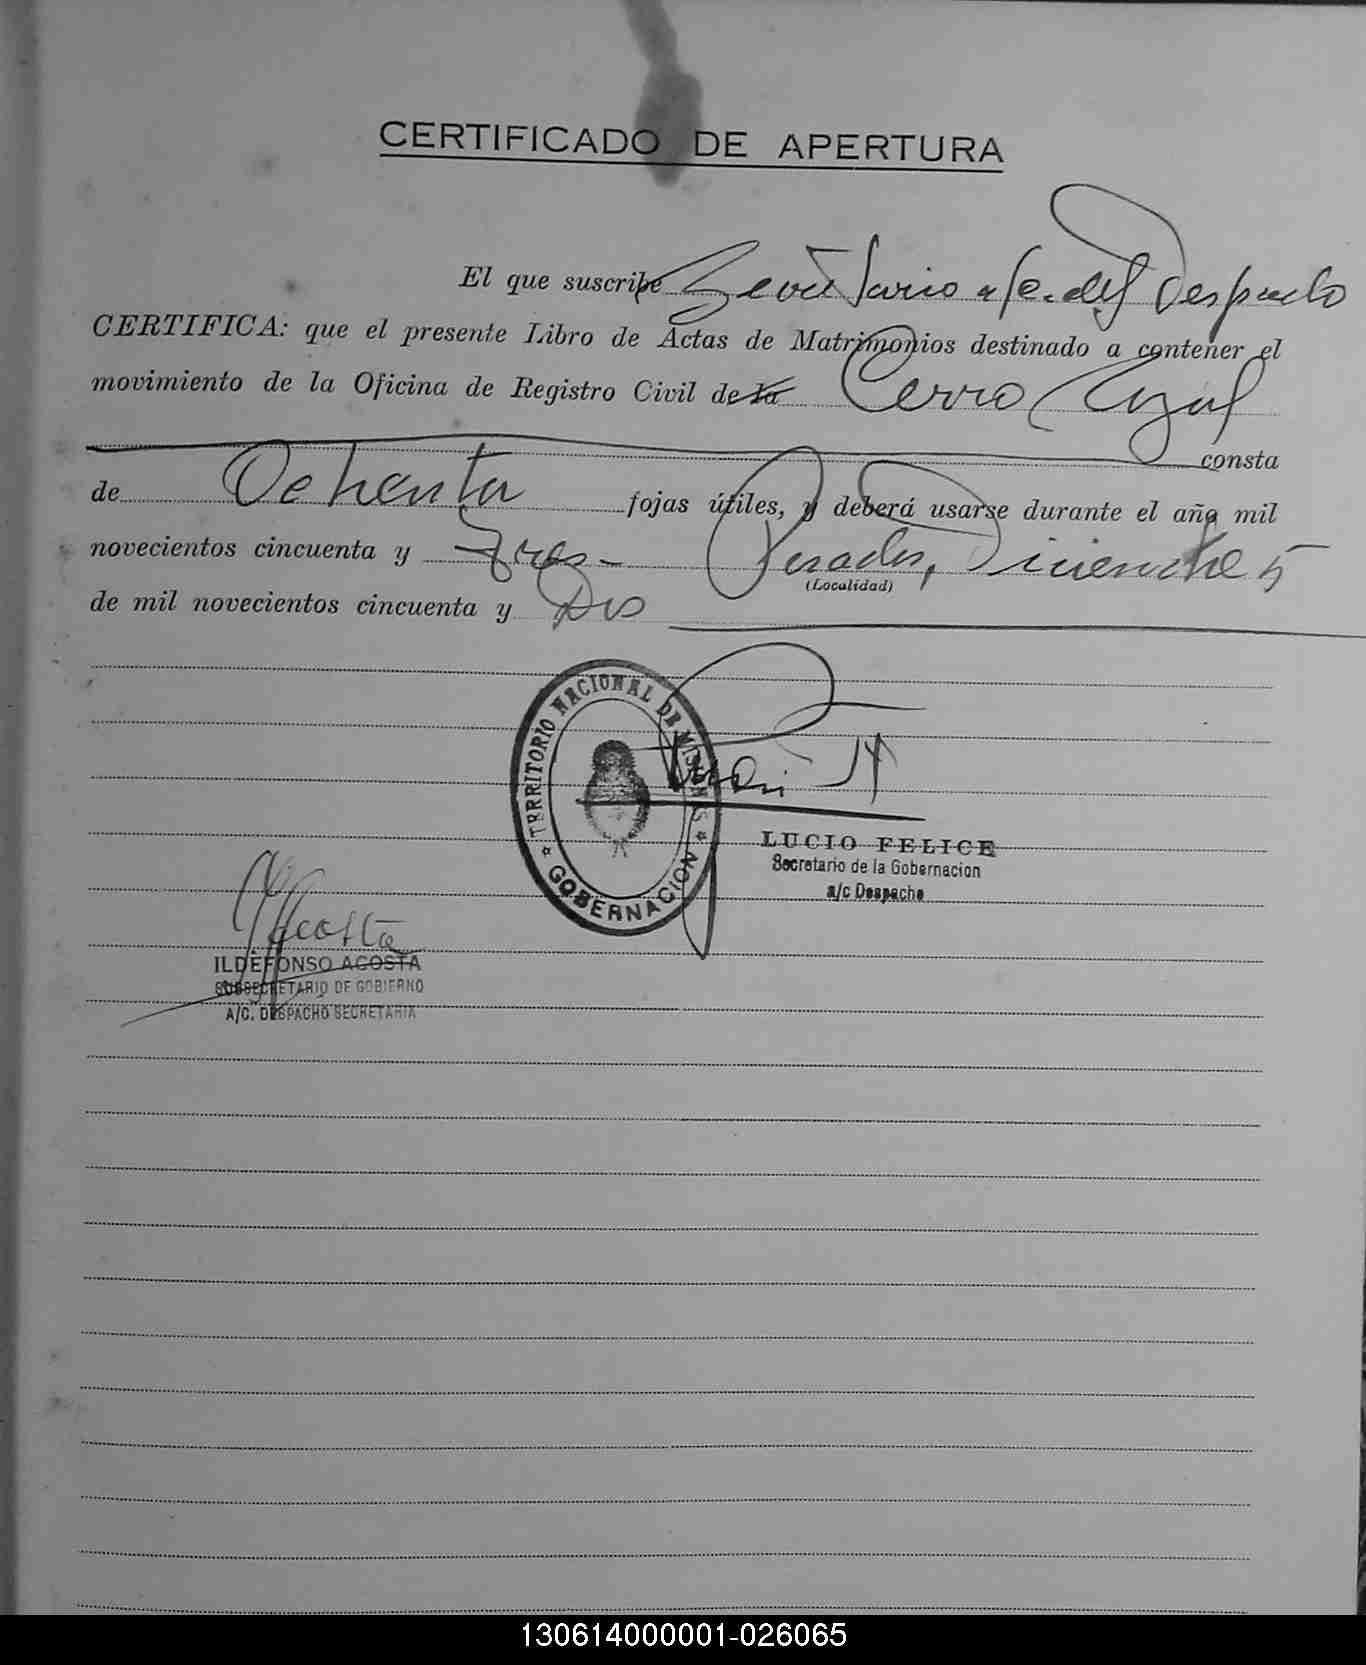 CERTIFICADO DE APERTURA
El que suscribe Secretario a/c. del Despacho
CERTIFICA: que el presente Libro de Actas de Matrimonios destinado a contener el
movimiento de la Oficina de Registro Civil de la Cerro Azul
consta
de Ochenta fojas útiles, y deberá usarse durante el año mil
novecientos cincuenta y Tres - Posadas, Diciembre 5
(Localidad)
de mil novecientos cincuenta y Dos
TERRITORIO NACIONAL DE MISIONES
* GOBERNACION *
LUCIO FELICE
Secretario de la Gobernacion
a/c Despacho
Acosta
ILDEFONSO ACOSTA
SUBSECRETARIO DE GOBIERNO
A/C. DESPACHO SECRETARIA
130614000001-026065